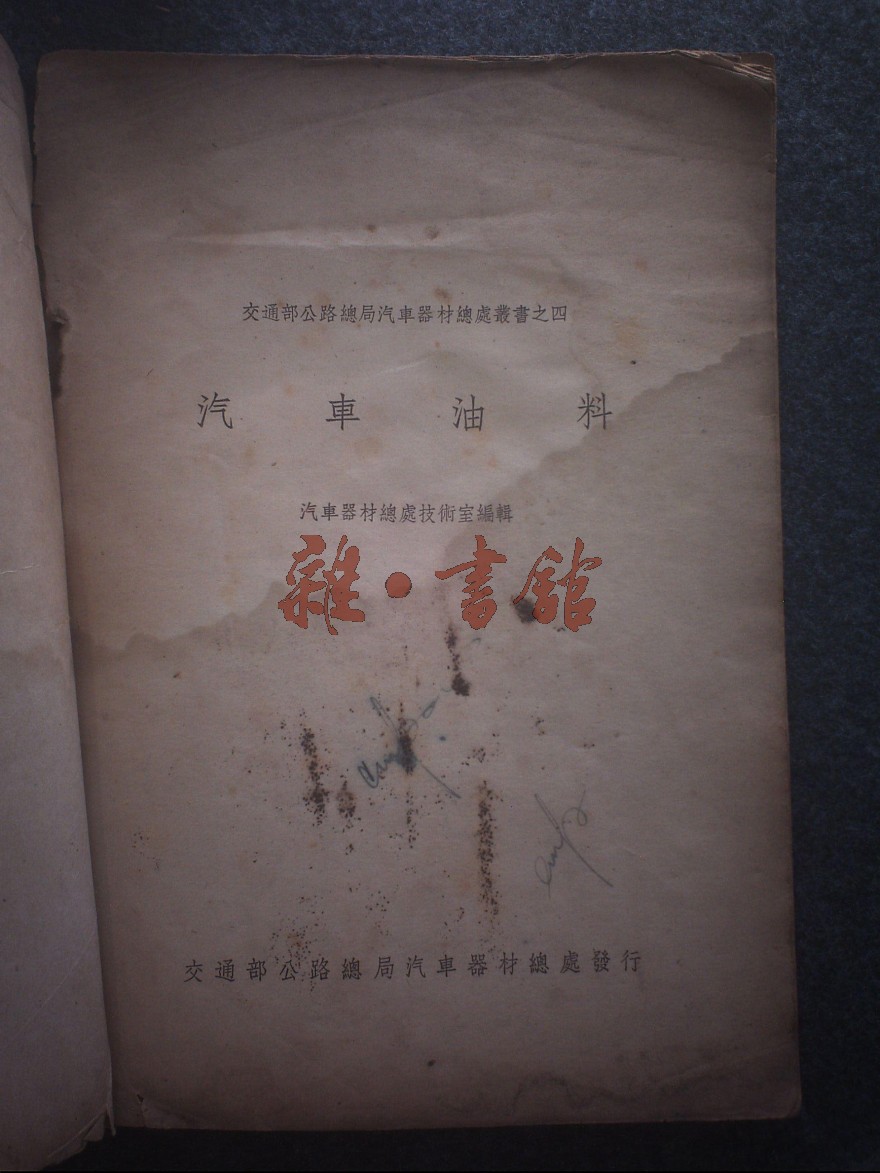 交通部公路總局汽車器材總處叢書之四
汽車油料
汽車器材總處技術室編輯
雜·書館
交通部公路總局汽車器材總處發行